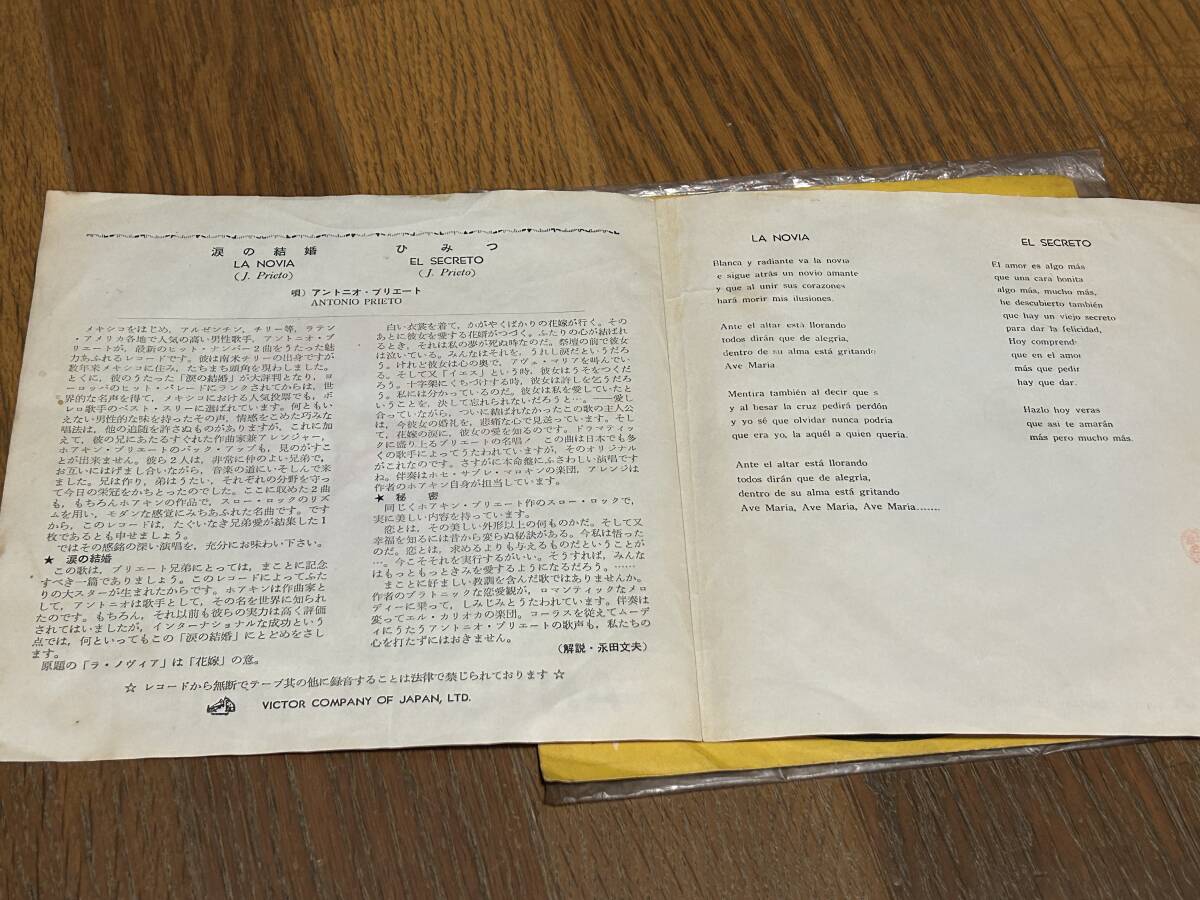 涙の結婚
LA NOVIA
(J. Prieto)
ひみつ
EL SECRETO
(J. Prieto)
唄) アントニオ・プリエート
ANTONIO PRIETO
メキシコをはじめ,アルゼンチン,チリー等,ラテン
・アメリカ各地で人気の高い男性歌手,アントニオ・プ
リエートが,最新のヒット・ナンバー2曲をうたった魅
力あふれるレコードです。彼は南米チリーの出身ですが
数年来メキシコに住み,たちまち頭角を現わしました。
とくに,彼のうたった「涙の結婚」が大評判となり,ヨ
ーロッパのヒット・パレードにランクされてからは,世
界的な名声を得て,メキシコにおける人気投票でも,ボ
レロ歌手のベスト・スリーに選ばれています。何ともい
えない男性的な味を持ったその声,情感をこめた巧みな
唱法は,他の追随を許さぬものがありますが,これに加
えて,彼の兄にあたるすぐれた作曲家兼アレンジャー,
ホアキン・プリエートのバック・アップも,見のがすこ
とが出来ません。彼ら2人は,非常に仲のよい兄弟で,
お互いにはげまし合いながら,音楽の道にいそしんで来
ました。兄は作り,弟はうたい,それぞれの分野を守っ
て今日の栄冠をかちとったのでした。ここに収めた2曲
も,もちろんホアキンの作品で,スロー・ロックのリズ
ムを用い,モダンな感覚にみちあふれた名曲です。です
から,このレコードは,たぐいなき兄弟愛が結集した1
枚であるとも申せましょう。
ではその感銘の深い演唱を,充分にお味わい下さい。
★ 涙の結婚
この歌は,プリエート兄弟にとっては,まことに記念
すべき一篇でありましょう。このレコードによってふた
りの大スターが生まれたからです。ホアキンは作曲家と
して,アントニオは歌手として,その名を世界に知られ
たのです。もちろん,それ以前も彼らの実力は高く評価
されてはいましたが,インターナショナルな成功という
点では,何といってもこの「涙の結婚」にとどめをさし
ます。
原題の「ラ・ノヴィア」は「花嫁」の意。
白い衣裳を着て,かがやくばかりの花嫁が行く。その
あとに彼女を愛する花婿がつづく。ふたりの心が結ばれ
るとき,それは私の夢が死ぬ時なのだ。祭壇の前で彼女
は泣いている。みんなはそれを,うれし涙だというだろ
う。けれど彼女は心の奥で,アヴェ・マリアを叫んでい
る。そして又「イエス」という時,彼女はうそをつくだ
ろう。十字架にくちづけする時,彼女は許しを乞うだろ
う。私には分かっているのだ。彼女は私を愛していたと
いうことを,決して忘れられないだろうと…。――愛し
合っていながら,ついに結ばれなかったこの歌の主人公
は,今彼女の婚礼を,悲痛な心で見送っています。そし
て,花嫁の涙に,彼女の愛を知るのです。ドラマティッ
クに盛り上るプリエートの名唱! この曲は日本でも多
くの歌手によってうたわれていますが,そのオリジナル
がこれなのです。さすがに本命盤にふさわしい演唱です
ね。伴奏はホセ・サブレ・マロキンの楽団,アレンジは
作者のホアキン自身が担当しています。
★ 秘密
同じくホアキン・プリエート作のスロー・ロックで,
実に美しい内容を持っています。
恋とは,その美しい外形以上の何ものかだ。そして又
幸福を知るには昔から変らぬ秘訣がある。今私は悟った
のだ。恋とは,求めるよりも与えるものだということが
…。今こそそれを実行するがいい。そうすれば,みんな
はもっともっときみを愛するようになるだろう。……
まことに好ましい教訓を含んだ歌ではありませんか。
作者のプラトニックな恋愛観が,ロマンティックなメロ
ディーに乗って,しみじみとうたわれています。伴奏は
変ってエル・カリオカの楽団。コーラスを従えてムーデ
ィにうたうアントニオ・プリエートの歌声も,私たちの
心を打たずにはおきません。
(解説・永田文夫)
☆ レコードから無断でテープ其の他に録音することは法律で禁じられております ☆
VICTOR COMPANY OF JAPAN, LTD.
LA NOVIA
Blanca y radiante va la novia
e sigue atrás un novio amante
y que al unir sus corazones
hará morir mis ilusiones.
Ante el altar está llorando
todos dirán que de alegría,
dentro de su alma está gritando
Ave Maria
Mentira también al decir que s
y al besar la cruz pedirá perdón
y yo sé que olvidar nunca podría
que era yo, la aquél a quien quería.
Ante el altar está llorando
todos dirán que de alegría,
dentro de su alma está gritando
Ave Maria, Ave Maria, Ave Maria.......
EL SECRETO
El amor es algo más
que una cara bonita
algo más, mucho más,
he descubierto también
que hay un viejo secreto
para dar la felicidad,
Hoy comprend
que en el amor
más que pedir
hay que dar.
Hazlo hoy veras
que asi te amarán
más pero mucho más.